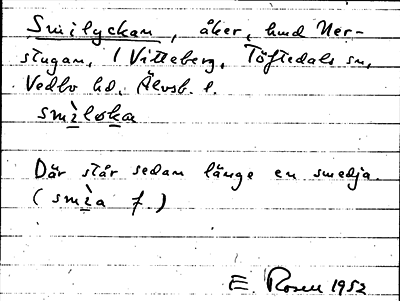 Smilyckan, åker, hmd Ner-
stugan, 1 Vitteberg, Töftedals sn,
Vedbo hd, Älvsb. l.
smìloka
Där står sedan länge en smedja.
(smìa f.)
E. Rosell 1952